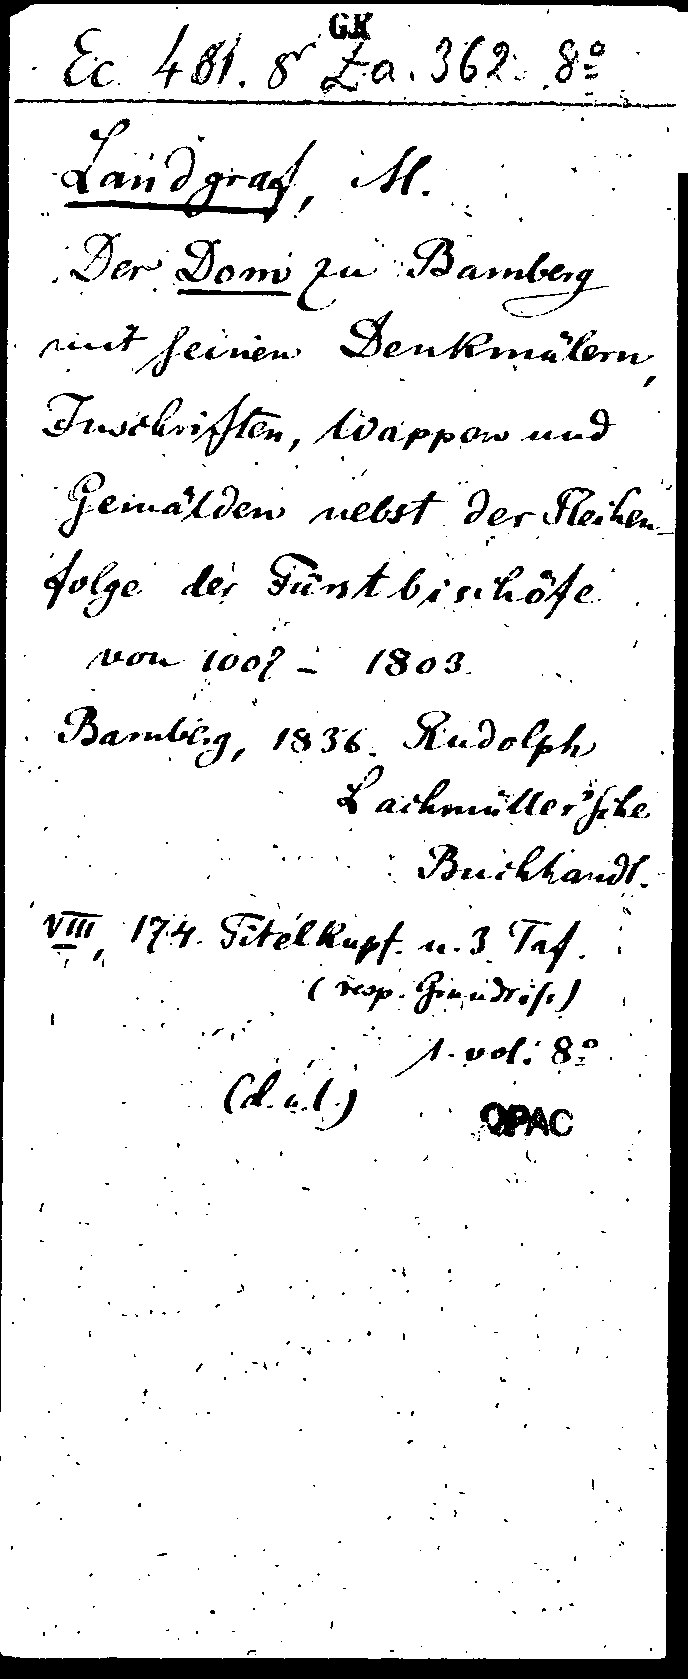 GK
Ec 481. 8r Za. 362. 8º
Landgraf, M.
Der Dom zu Bamberg
mit seinen Denkmälern,
Inschriften, Wappen und
Gemälden nebst der Reihen-
folge der Fürstbischöfe
von 1007 - 1803
Bamberg, 1836. Rudolph
Lachmüller'sche
Buchhandl.
VIII, 174. Titelkupf. u. 3 Taf.
(resp. Grundriße)
1. vol. 8º
(d.u.l.)
OPAC